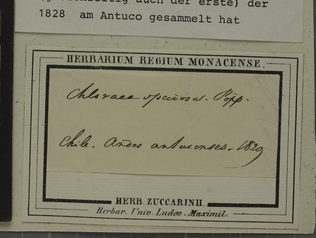 der erste) der
1828 am Antuco gesammelt hat
HERBARIUM REGIUM MONACENSE.
Chloraea speciosa. Pöpp.
Chile. Andes antucenses. 1829
HERB. ZUCCARINII.
Herbar. Univ. Ludov. Maximil.